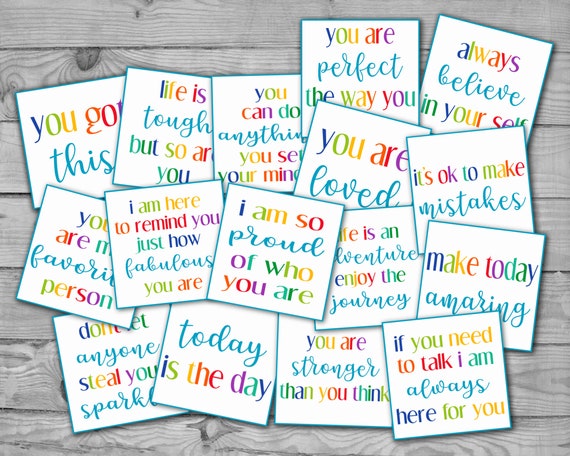 you are
perfect
the way you
always
believe
in your self
you got
this
life is
tough
but so are
you
you
can do
anything
you set
your mind
you are
loved
it's ok to make
mistakes
you
are my
favorite
person
i am here
to remind you
just how
fabulous
you are
i am so
proud
of who
you are
life is an
adventure
enjoy the
journey
make today
amazing
don't let
anyone
steal your
sparkle
today
is the day
you are
stronger
than you think
if you need
to talk i am
always
here for you